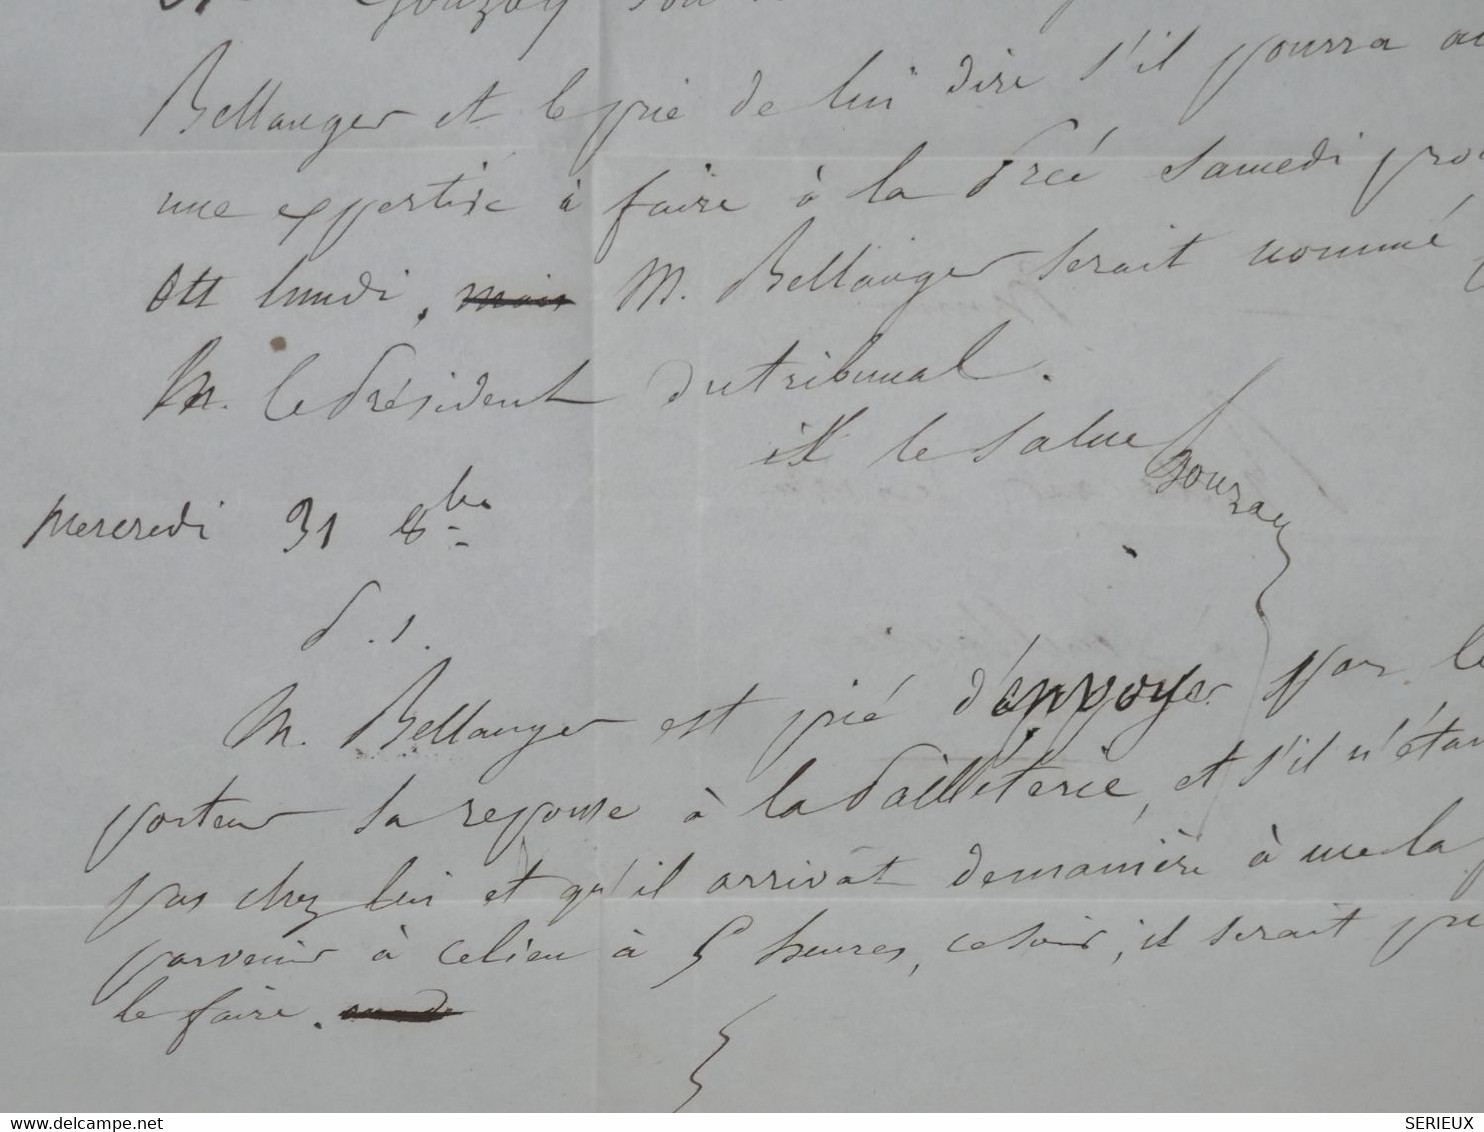 Gouzay
Bellanger et le prie de lui dire s'il pourra
une expertise à faire à la Prée samedi
Ou lundi, mais M. Bellanger serait nommé
M. le Président du tribunal.
il le salue Gouzay
Mercredi 31 8bre
P.S.
M. Bellanger est prié d'envoyer par le
porteur sa reponse à la Pailleterie, et s'il n'était
pas chez lui et qu'il arrivât de manière à me la
parvenir à ce lieu à 5 heures, ce soir, il serait
le faire.
Delcampe.net
SERIEUX